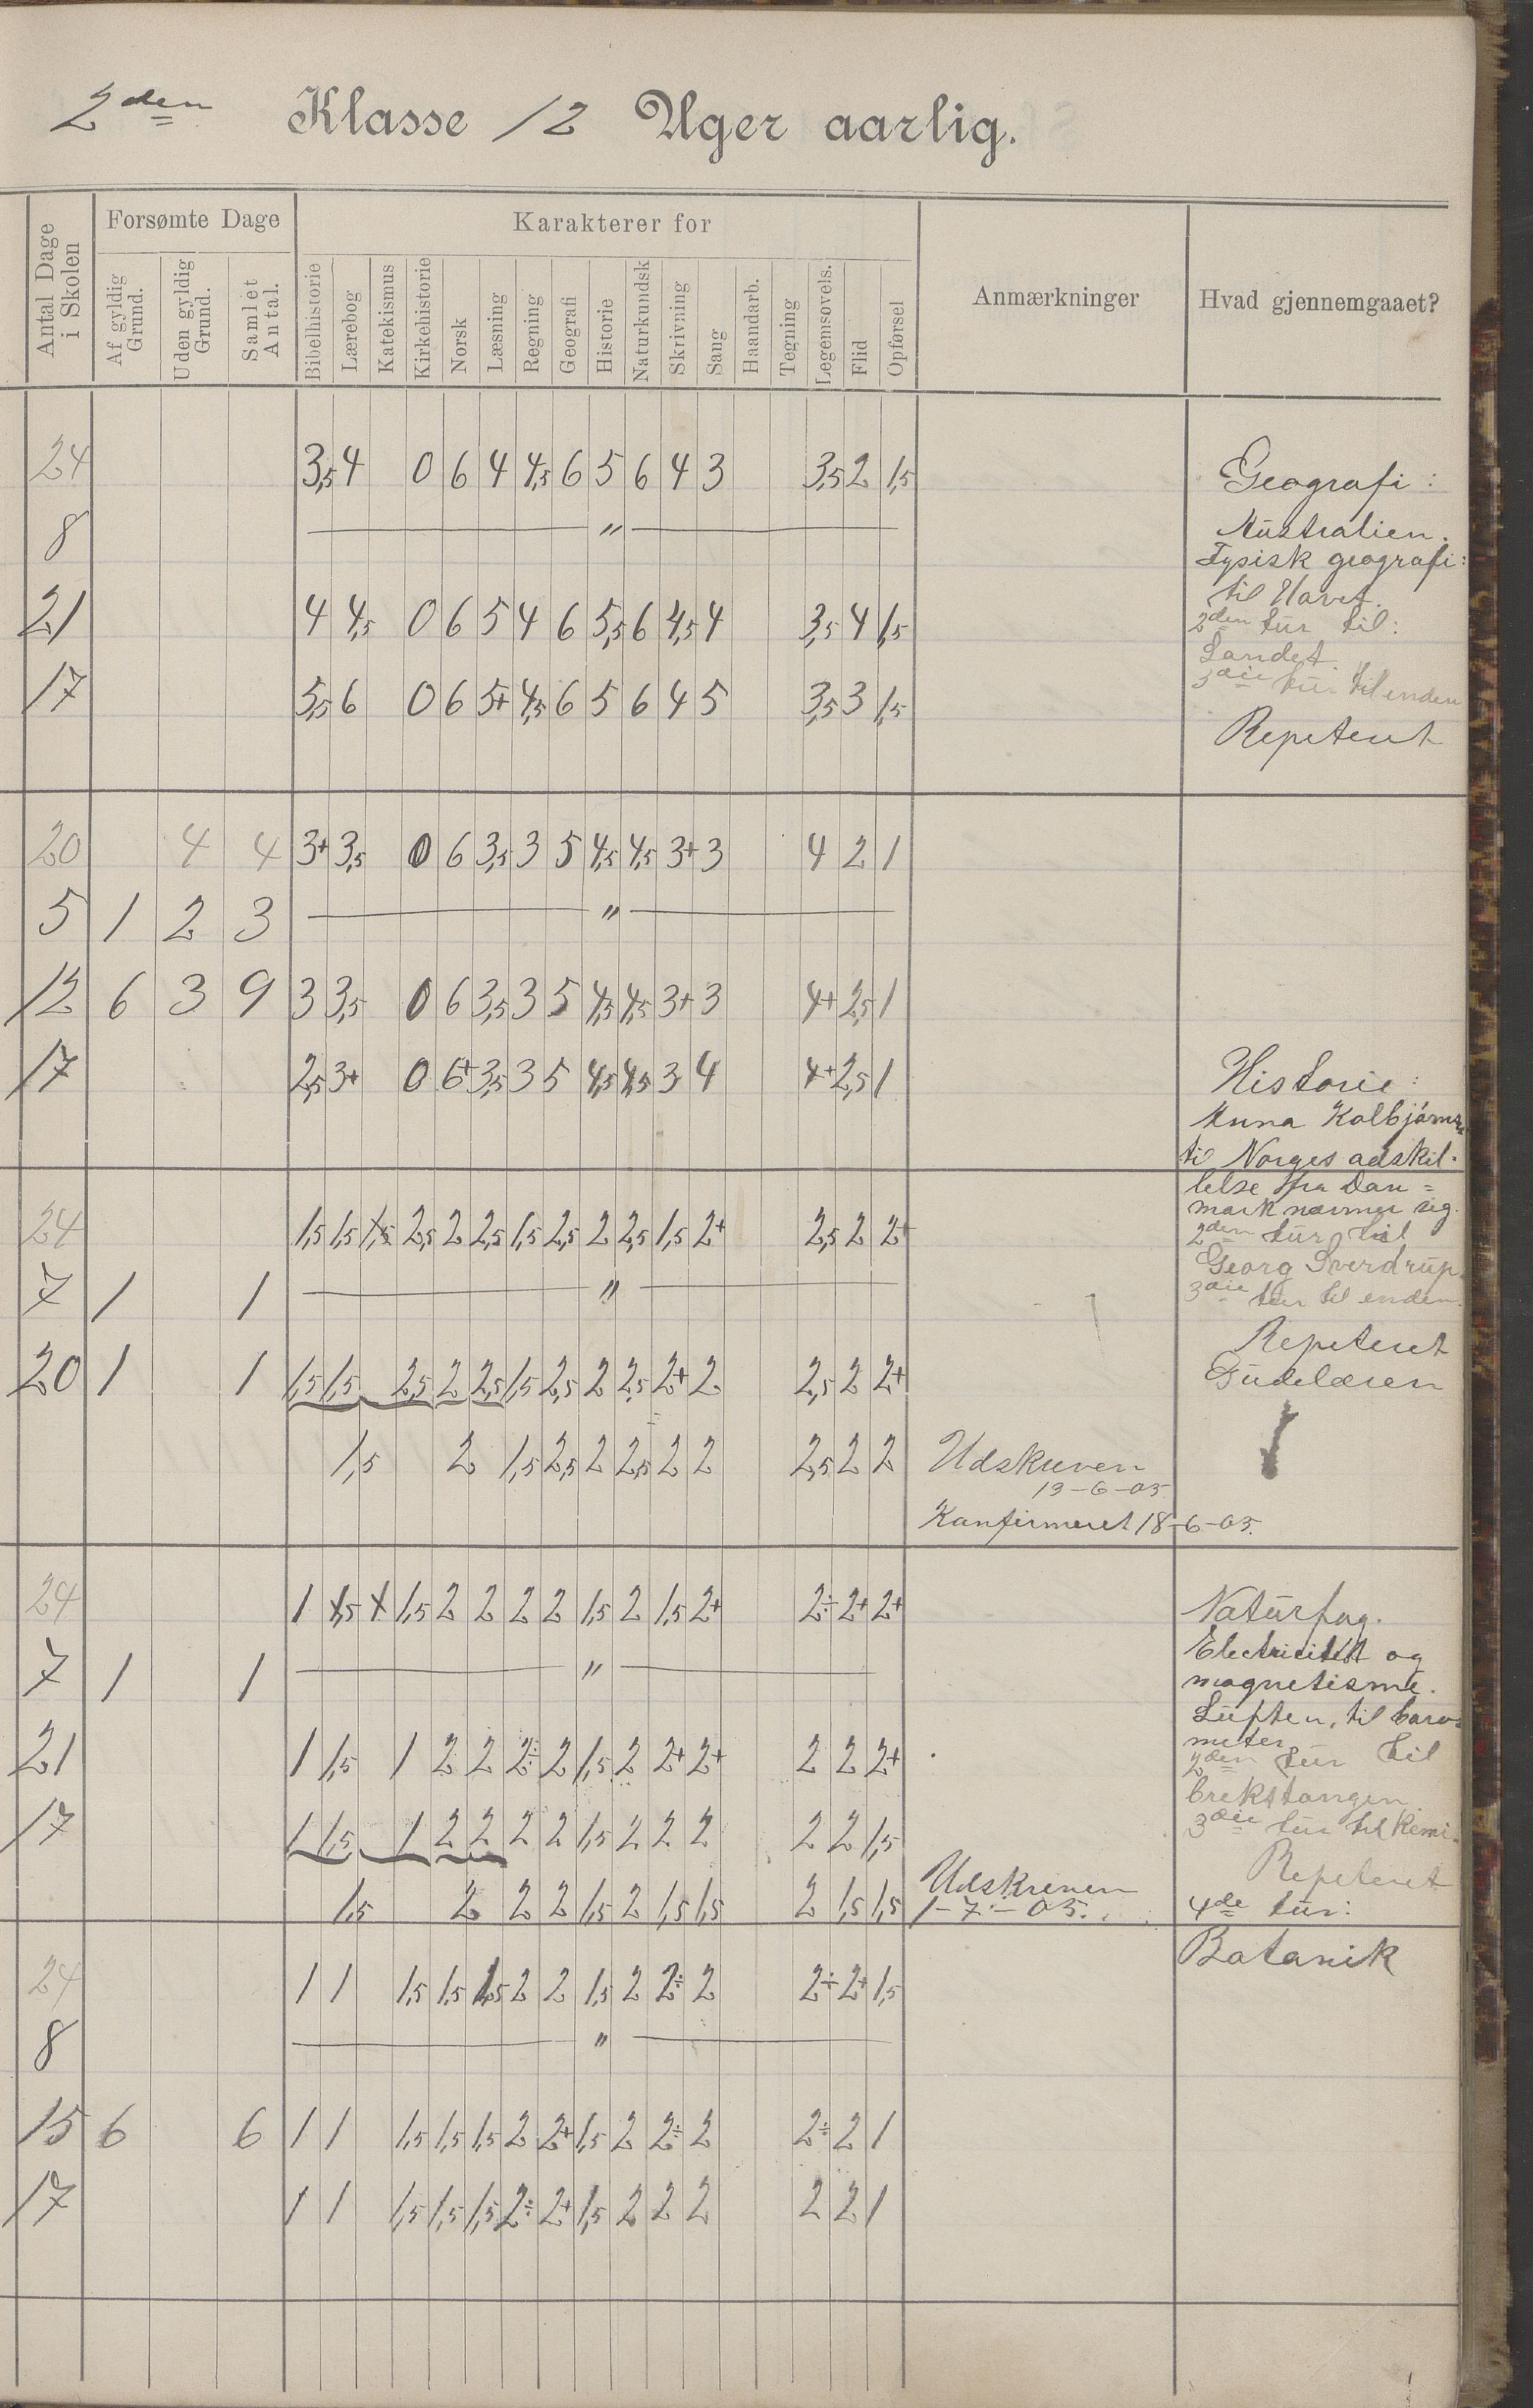 2den Klasse 12 Uger aarlig.
Antal Dage i Skolen
Forsømte Dage
Af gyldig Grund.
Uden gyldig Grund.
Samlet Antal.
Karakterer for
Bibelhistorie
Lærebog
Katekismus
Kirkehistorie
Norsk
Læsning
Regning
Geografi
Historie
Naturkundsk
Skrivning
Sang
Haandarb.
Tegning
Legemsøvels.
Flid
Opførsel
Anmærkninger
Hvad gjennemgaaet?
24 3,5 4 0 6 4 4,5 6 5 6 4 3 3,5 2 1,5
8 — " —
21 4 4,5 0 6 5 4 6 5,5 6 4,5 4 3,5 4 1,5
17 5,5 6 0 6 5+ 4,5 6 5 6 4 5 3,5 3 1,5
Geografi:
Australien.
Fysisk geografi:
til Havet.
2den tur til:
Landet.
3die tur til enden
Repetert
20 4 4 3+ 3,5 0 6 3,5 3 5 4,5 4,5 3+ 3 4 2 1
5 1 2 3 — " —
12 6 3 9 3 3,5 0 6 3,5 3 5 4,5 4,5 3+ 3 4+ 2,5 1
17 2,5 3+ 0 6+ 3,5 3 5 4,5 4,5 3 4 4+ 2,5 1
Historie:
Anna Kolbjørns
til Norges adskil-
lelse fra Dan=
mark nærmer sig.
2den tur til
Georg Sverdrup.
3die tur til enden.
Repetert
Gudelæren
24 1,5 1,5 1,5 2,5 2 2,5 1,5 2,5 2 2,5 1,5 2+ 2,5 2 2+
7 1 1 — " —
20 1 1 1,5 1,5 2,5 2 2,5 1,5 2,5 2 2,5 2+ 2 2,5 2 2+
1,5 2 1,5 2,5 2 2,5 2 2 2,5 2 2
Udskreven
13-6-05.
Konfirmeret 18-6-05.
24 1 1,5 1 1,5 2 2 2 2 1,5 2 1,5 2+ 2÷ 2+ 2+
7 1 1 — " —
21 1 1,5 1 2 2 2÷ 2 1,5 2 2+ 2+ 2 2 2+
17 1 1,5 1 2 2 2 2 1,5 2 2 2 2 2 1,5
1,5 2 2 2 1,5 2 1,5 1,5 2 1,5 1,5
Udskreven
1-7-05.
Naturfag.
Electricitet og
magnetisme.
Luften, til baro=
meter
2den tur til
brekstangen
3die tur til Kemi.
Repetert
4de tur:
Botanik
24 1 1 1,5 1,5 1,5 2 2 1,5 2 2÷ 2 2÷ 2+ 1,5
8 — " —
15 6 6 1 1 1,5 1,5 1,5 2 2+ 1,5 2 2÷ 2 2÷ 2 1
17 1 1 1,5 1,5 1,5 2÷ 2+ 1,5 2 2 2 2 2 1